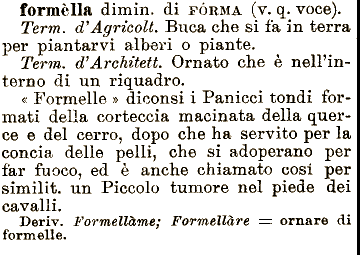 formèlla dimin. di FÓRMA (v. q. voce).
Term. d'Agricolt. Buca che si fa in terra
per piantarvi alberi o piante.
Term. d'Archïtett. Ornato che è nell'in-
terno di un riquadro.
« Formelle » diconsi i Panicci tondi for-
mati della corteccia macinata della quer-
ce e del cerro, dopo che ha servito per la
concia delle pelli, che si adoperano per
far fuoco, ed è anche chiamato così per
similit. un Piccolo tumore nel piede dei
cavalli.
Deriv. Formellàme; Formellàre = ornare di
formelle.